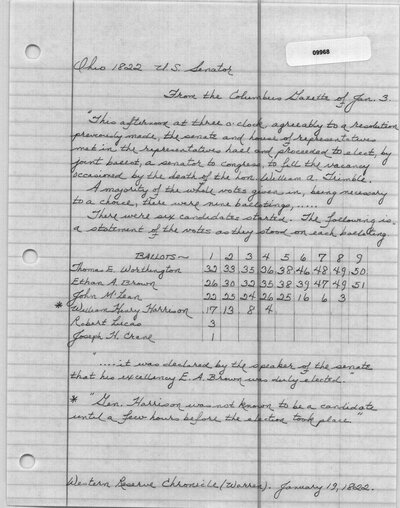 09968
Ohio 1822 U.S. Senator
From the Columbus Gazette of Jan. 3.
"This afternoon at three o'clock, agreeably to a resolution
previously made, the senate and house of representatives
met in the representatives hall and proceeded to elect, by
joint ballot, a senator to congress, to fill the vacancy
occasioned by the death of the hon. William A. Trimble.
A majority of the whole votes given in, being necessary
to a choice, there were nine ballotings, ......
There were six candidates started. The following is
a statement of the votes as they stood on each balloting.
BALLOTS~ 1 2 3 4 5 6 7 8 9
Thomas E. Worthington 32 33 35 36 38 46 48 49 50
Ethan A. Brown 26 30 32 35 38 39 47 49 51
John M'Lean 22 25 24 26 25 16 6 3
* William Henry Harrison 17 13 8 4
Robert Lucas 3
Joseph H. Crane 1
".... it was declared by the speaker of the senate
that his excellency E. A. Brown was duly elected."
* "Gen. Harrison was not known to be a candidate
until a few hours before the election took place."
Western Reserve Chronicle (Warren). January 19, 1822.